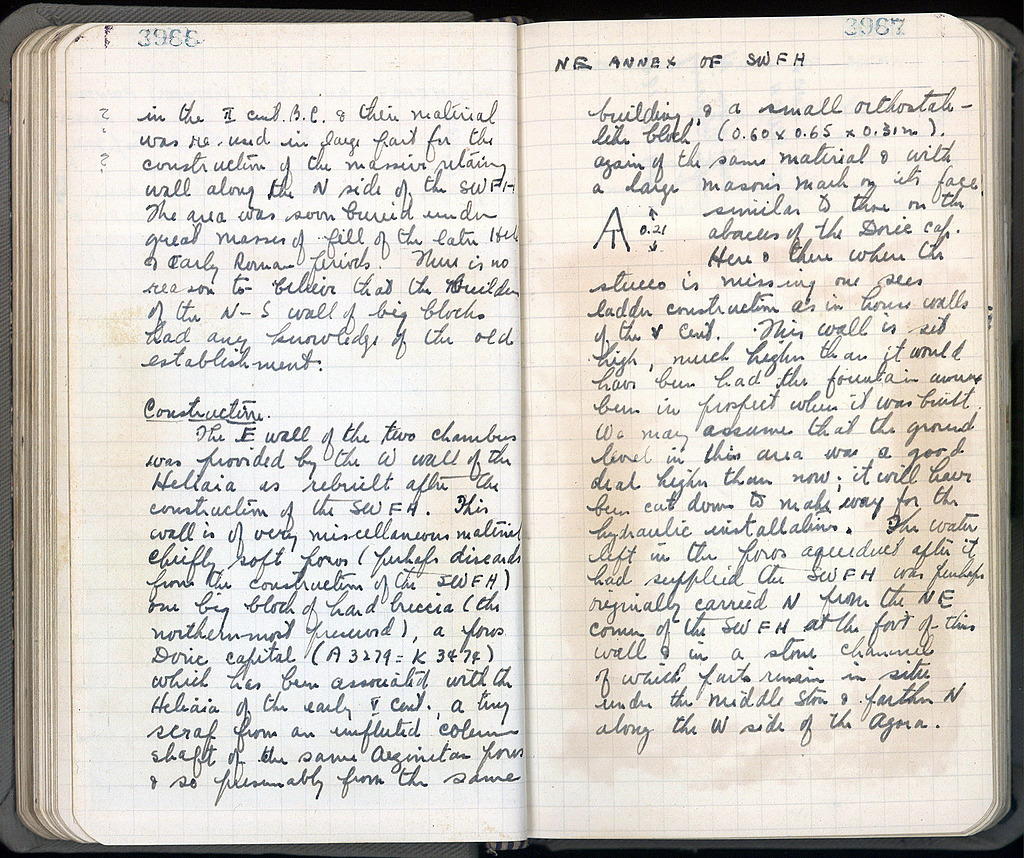 3966
? in the II cent. B.C. & their material
? was re-used in large part for the
? construction of the massive retaining
wall along the N side of the SWFH
The area was soon buried under
great masses of fill of the later Hel
& Early Roman periods. There is no
reason to believe that the builders
of the N-S wall of big blocks
had any knowledge of the old
establishment.
Construction.
The E wall of the two chambers
was provided by the W wall of the
Heliaia as rebuilt after the
construction of the SWFH. This
wall is of very miscellaneous material
chiefly soft poros (perhaps discards
from the construction of the SWFH)
one big block of hard breccia (the
northernmost preserved), a poros
Doric capital (A 3279 = K 3474)
which has been associated with the
Heliaia of the early V cent., a tiny
scrap from an unfluted column
shaft of the same Aeginetan poros
& so presumably from the same
3967
NE ANNEX OF SWFH
building, & a small orthostate-
like block (0.60 x 0.65 x 0.31m).
again of the same material & with
a large mason's mark on its face
similar to those on the
A 0.21 abacus of the Doric cap.
Here & there where the
stucco is missing one sees
ladder construction as in house walls
of the V cent. This wall is set
high, much higher than it would
have been had the fountain annex
been in prospect when it was built.
We may assume that the ground
level in this area was a good
deal higher than now; it will have
been cut down to make way for the
hydraulic installations. The water
left in the poros aqueduct after it
had supplied the SWFH was perhaps
originally carried N from the NE
corner of the SWFH at the foot of this
wall & in a stone channel
of which parts remain in situ
under the Middle Stoa & farther N
along the W side of the Agora.